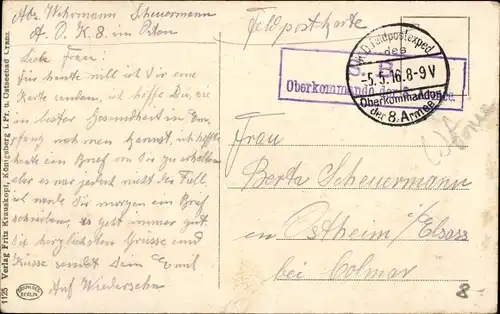 Abs. Wehrmann Scheuermann
A. O. K. 8. im Osten
Feldpostkarte
Liebe Frau!
Für heute will ich dir eine
Karte senden, ich hoffe du
in bester Gesundheit in
nehmen kannst, ich hoffte
heute ein Brief von Dir zu erhalten
aber es war jedoch nicht der Fall,
ich werde Dir morgen ein Brief
schreiben, es geht immer gut.
Die herzlichsten Grüsse und
Küsse sendet Dein Emil
Auf Wiedersehn
K. D. Feldpostexped.
des
-5.5.16.8-9V
Oberkommandos
der 8. Armee
S. B.
Oberkommando der
Frau
Berta Scheuermann
in Ostheim/Elsass
bei Colmar
8-
1125 Verlag Fritz Krauskopf, Königsberg i. Pr. u. Ostseebad Cranz.
BERLIN